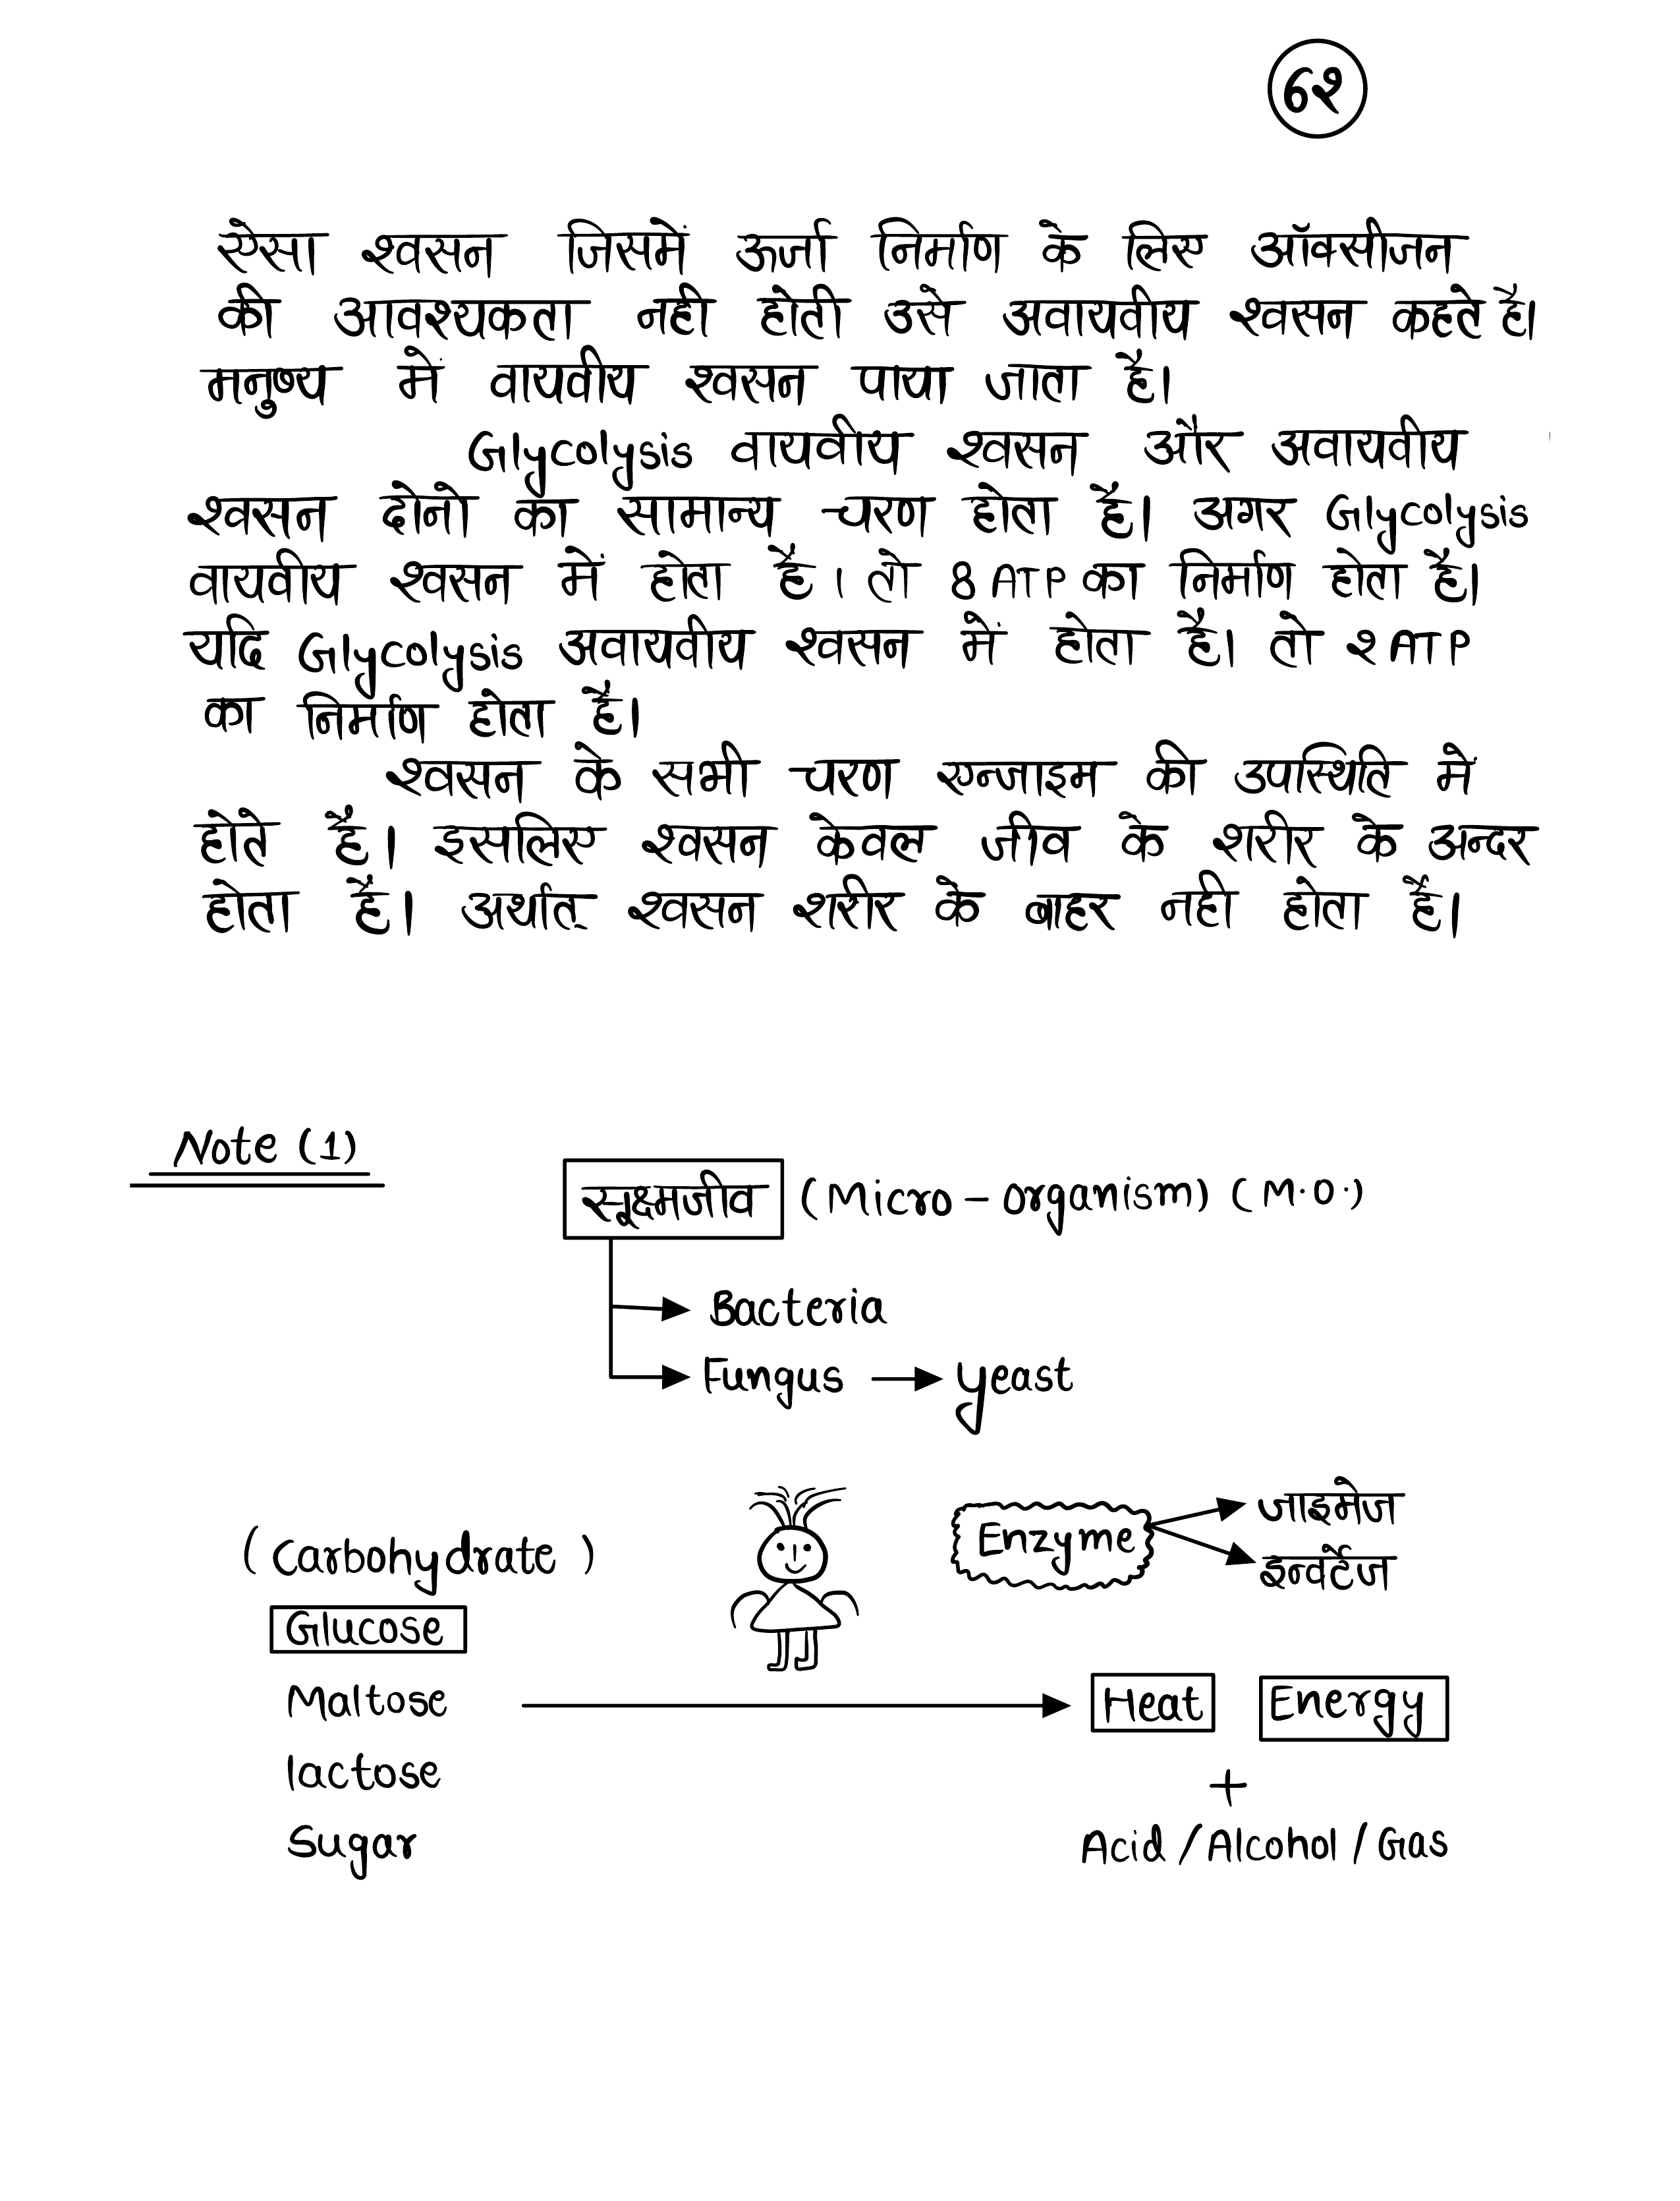 62
ऐसा श्वसन जिसमें ऊर्जा निर्माण के लिए ऑक्सीजन
की आवश्यकता नही होती उसे अवायवीय श्वसन कहते है।
मनुष्य में वायवीय श्वसन पाया जाता है।
Glycolysis वायवीय श्वसन और अवायवीय
श्वसन दोनो का सामान्य चरण होता है। अगर Glycolysis
वायवीय श्वसन में होता है। तो 8 ATP का निर्माण होता है।
यदि Glycolysis अवायवीय श्वसन में होता है। तो 2 ATP
का निर्माण होता है।
श्वसन के सभी चरण एन्जाइम की उपस्थिति मे
होते है। इसलिए श्वसन केवल जीव के शरीर के अन्दर
होता है। अर्थात् श्वसन शरीर के बाहर नही होता है।
Note (1)
सूक्ष्मजीव (Micro-organism) (M.O.)
Bacteria
Fungus → yeast
Enzyme
जाइमेज
इन्वर्टेज
(Carbohydrate)
Glucose
Maltose → Heat Energy
lactose
+
Sugar
Acid / Alcohol / Gas